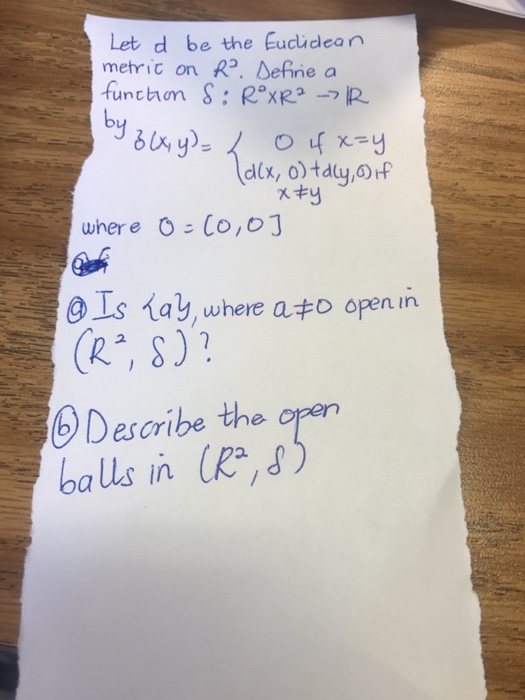 Let d be the Euclidean
metric on R². Define a
function δ : R²xR² → R
by
δ(x,y) = { 0 if x=y
d(x, 0)+d(y,0) if
x≠y
where 0 = (0,0]
ⓐ Is {a}, where a≠0 open in
(R², δ)?
ⓑ Describe the open
balls in (R², δ)